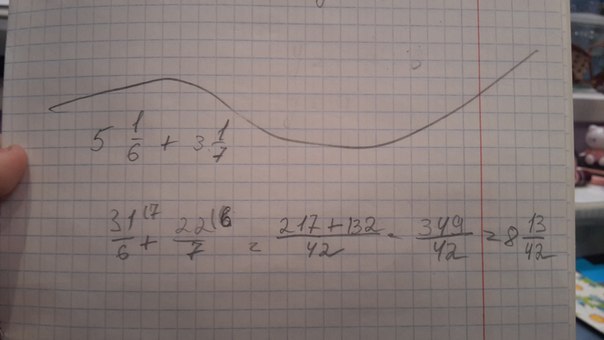 5 1/6 + 3 1/7
31/6 (7 + 22/7 (6 = (217+132)/42 = 349/42 = 8 13/42